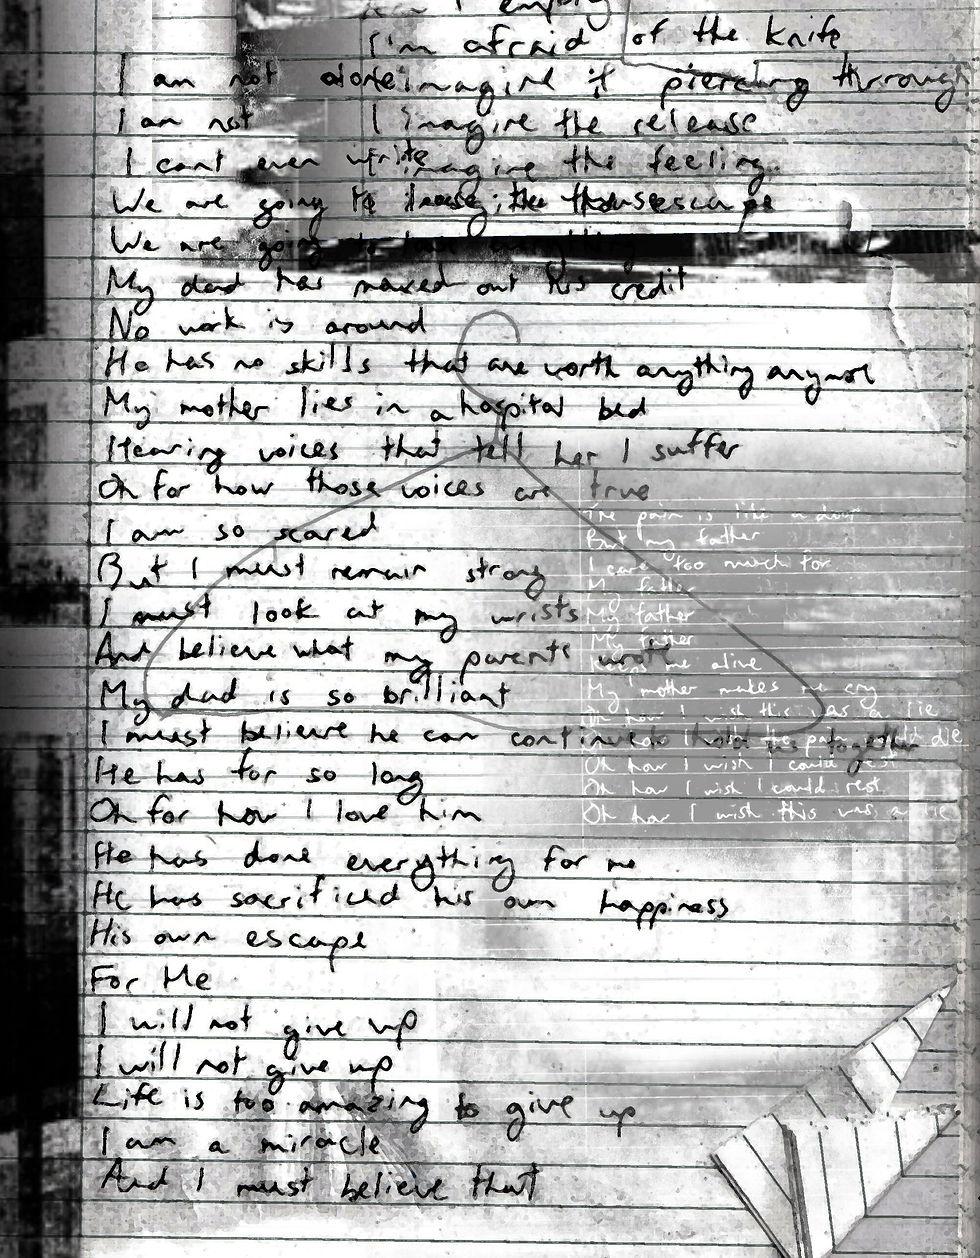 I'm afraid of the knife
I am not alone imagine it piercing through
I am not I imagine the release
I cant even write imagine the feeling
We are going to
We are going to
My dad has maxed out his credit
No work is around
He has no skills that are worth anything anymore
My mother lies in a hospital bed
Hearing voices that tell her I suffer
Oh for how those voices are true
I am so scared
But I must remain strong
I must look at my wrists
And believe what my parents wrote
My dad is so brilliant
I must believe he can continue to hold us together
He has for so long
Oh for how I love him
He has done everything for me
He has sacrificed his own happiness
His own escape
For Me
I will not give up
I will not give up
Life is too amazing to give up
I am a miracle
And I must believe that
The pain is like a
But my father
I care too much for
My father
My father
My father
Keeps me alive
My mother makes me cry
Oh how I wish this was a lie
the pain would die
Oh how I wish I could rest
Oh how I wish I could rest
Oh how I wish this was a lie